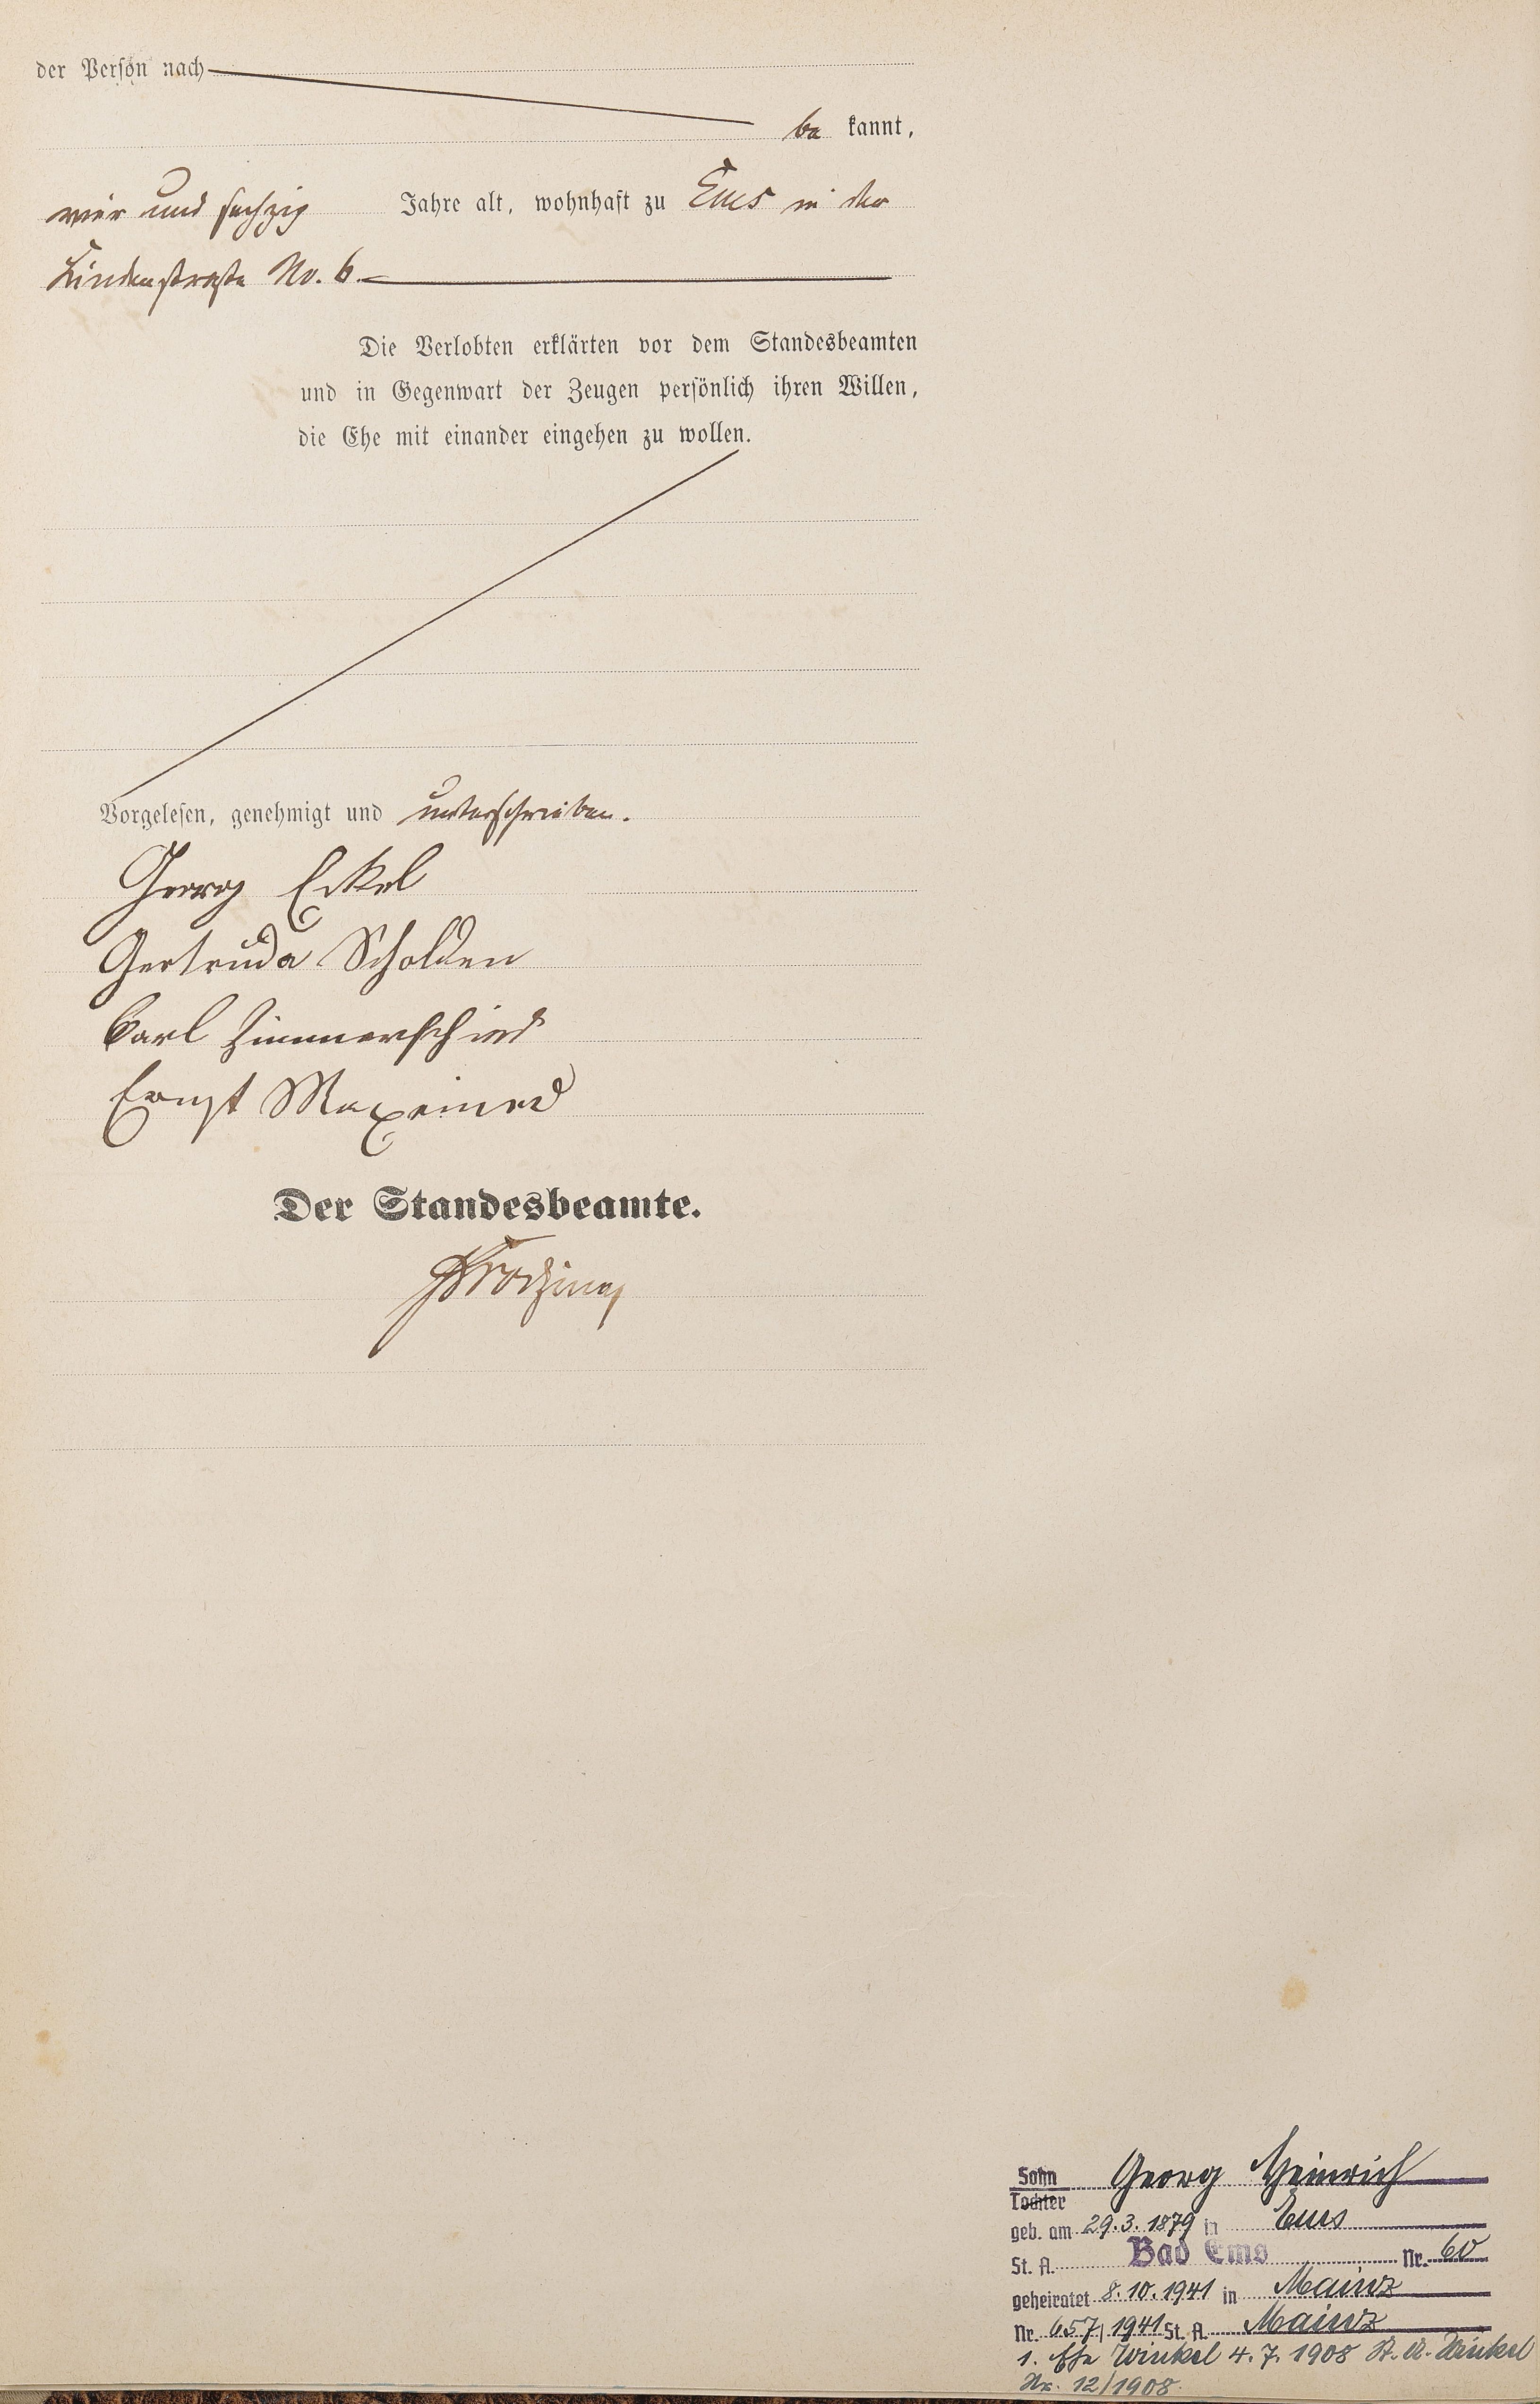 der Person nach
be kannt,
vier und sechzig Jahre alt, wohnhaft zu Ems in der
Lindenstraße No. 6.
Die Verlobten erklärten vor dem Standesbeamten
und in Gegenwart der Zeugen persönlich ihren Willen,
die Ehe mit einander eingehen zu wollen.
Vorgelesen, genehmigt und unterschrieben.
Georg Eckel
Gertruda Scholden
Carl Zimmerschied
Ernst Maxeiner
Der Standesbeamte.
Sohn Georg Heinrich
Tochter
geb. am 29.3.1879 in Ems
St. A. Bad Ems Nr. 60
geheiratet 8.10.1941 in Mainz
Nr. 657/1941 St. A. Mainz
1. Ehe Winkel 4.7.1908 St. A. Winkel
Nr. 12/1908.